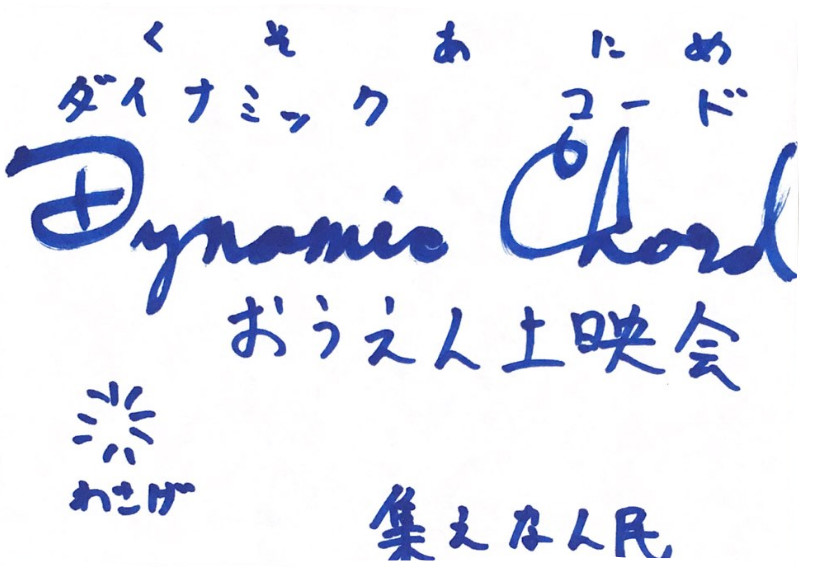 くそ あにめ
ダイナミック コード
Dynamic Chord
おうえん上映会
わさげ
集えなん民